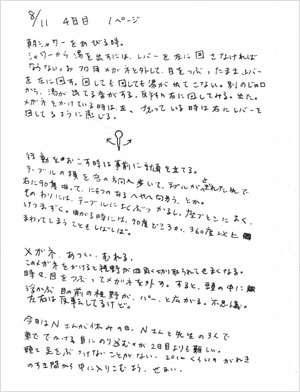 8/11 4日目 1ページ
朝シャワーをあびる時。
シャワーから湯を出すには、レバーを左に回さなければ
ならない。お フロ用メガネを外して、目をつぶったままレバー
を左に回す。回しても回しても湯が出てこない。別のじゃ口
から、湯が出てる音がする。反対の右に回してみる。出た。
メガネをかけている時は左。つぶっている時は右にレバーを
回してるように感じる。
行動をおこす時は事前に計画を立てる。
テーブルの横を窓の方向へ歩いて、テーブルがとぎれた所で
右に90度曲って、にもつのある へ向う、とか。
そのわりには、テーブルによくぶつかるし、座イスによく
けつまずく。曲がる時には、90度どころか、360度以上
まわってしまうこともしばしば。
メガネ、あつい・むれる。
このメガネをかけると視野が四角く切り取られてせまくなる。
時々、目をつぶってメガネを外す。すると、頭の中に
浮かぶ目の前の視野が、パーッと広がる。不思議。
左右は反転してるけど。
今日はNさんが休みの日。Nさんと先生の3人で
車ででかける。車にのり込むのが2日目よりも難しい。
頭と足をぶつけないことがない。20cmくらいのがれき
のすき間から中に入りこむよう。せまい。